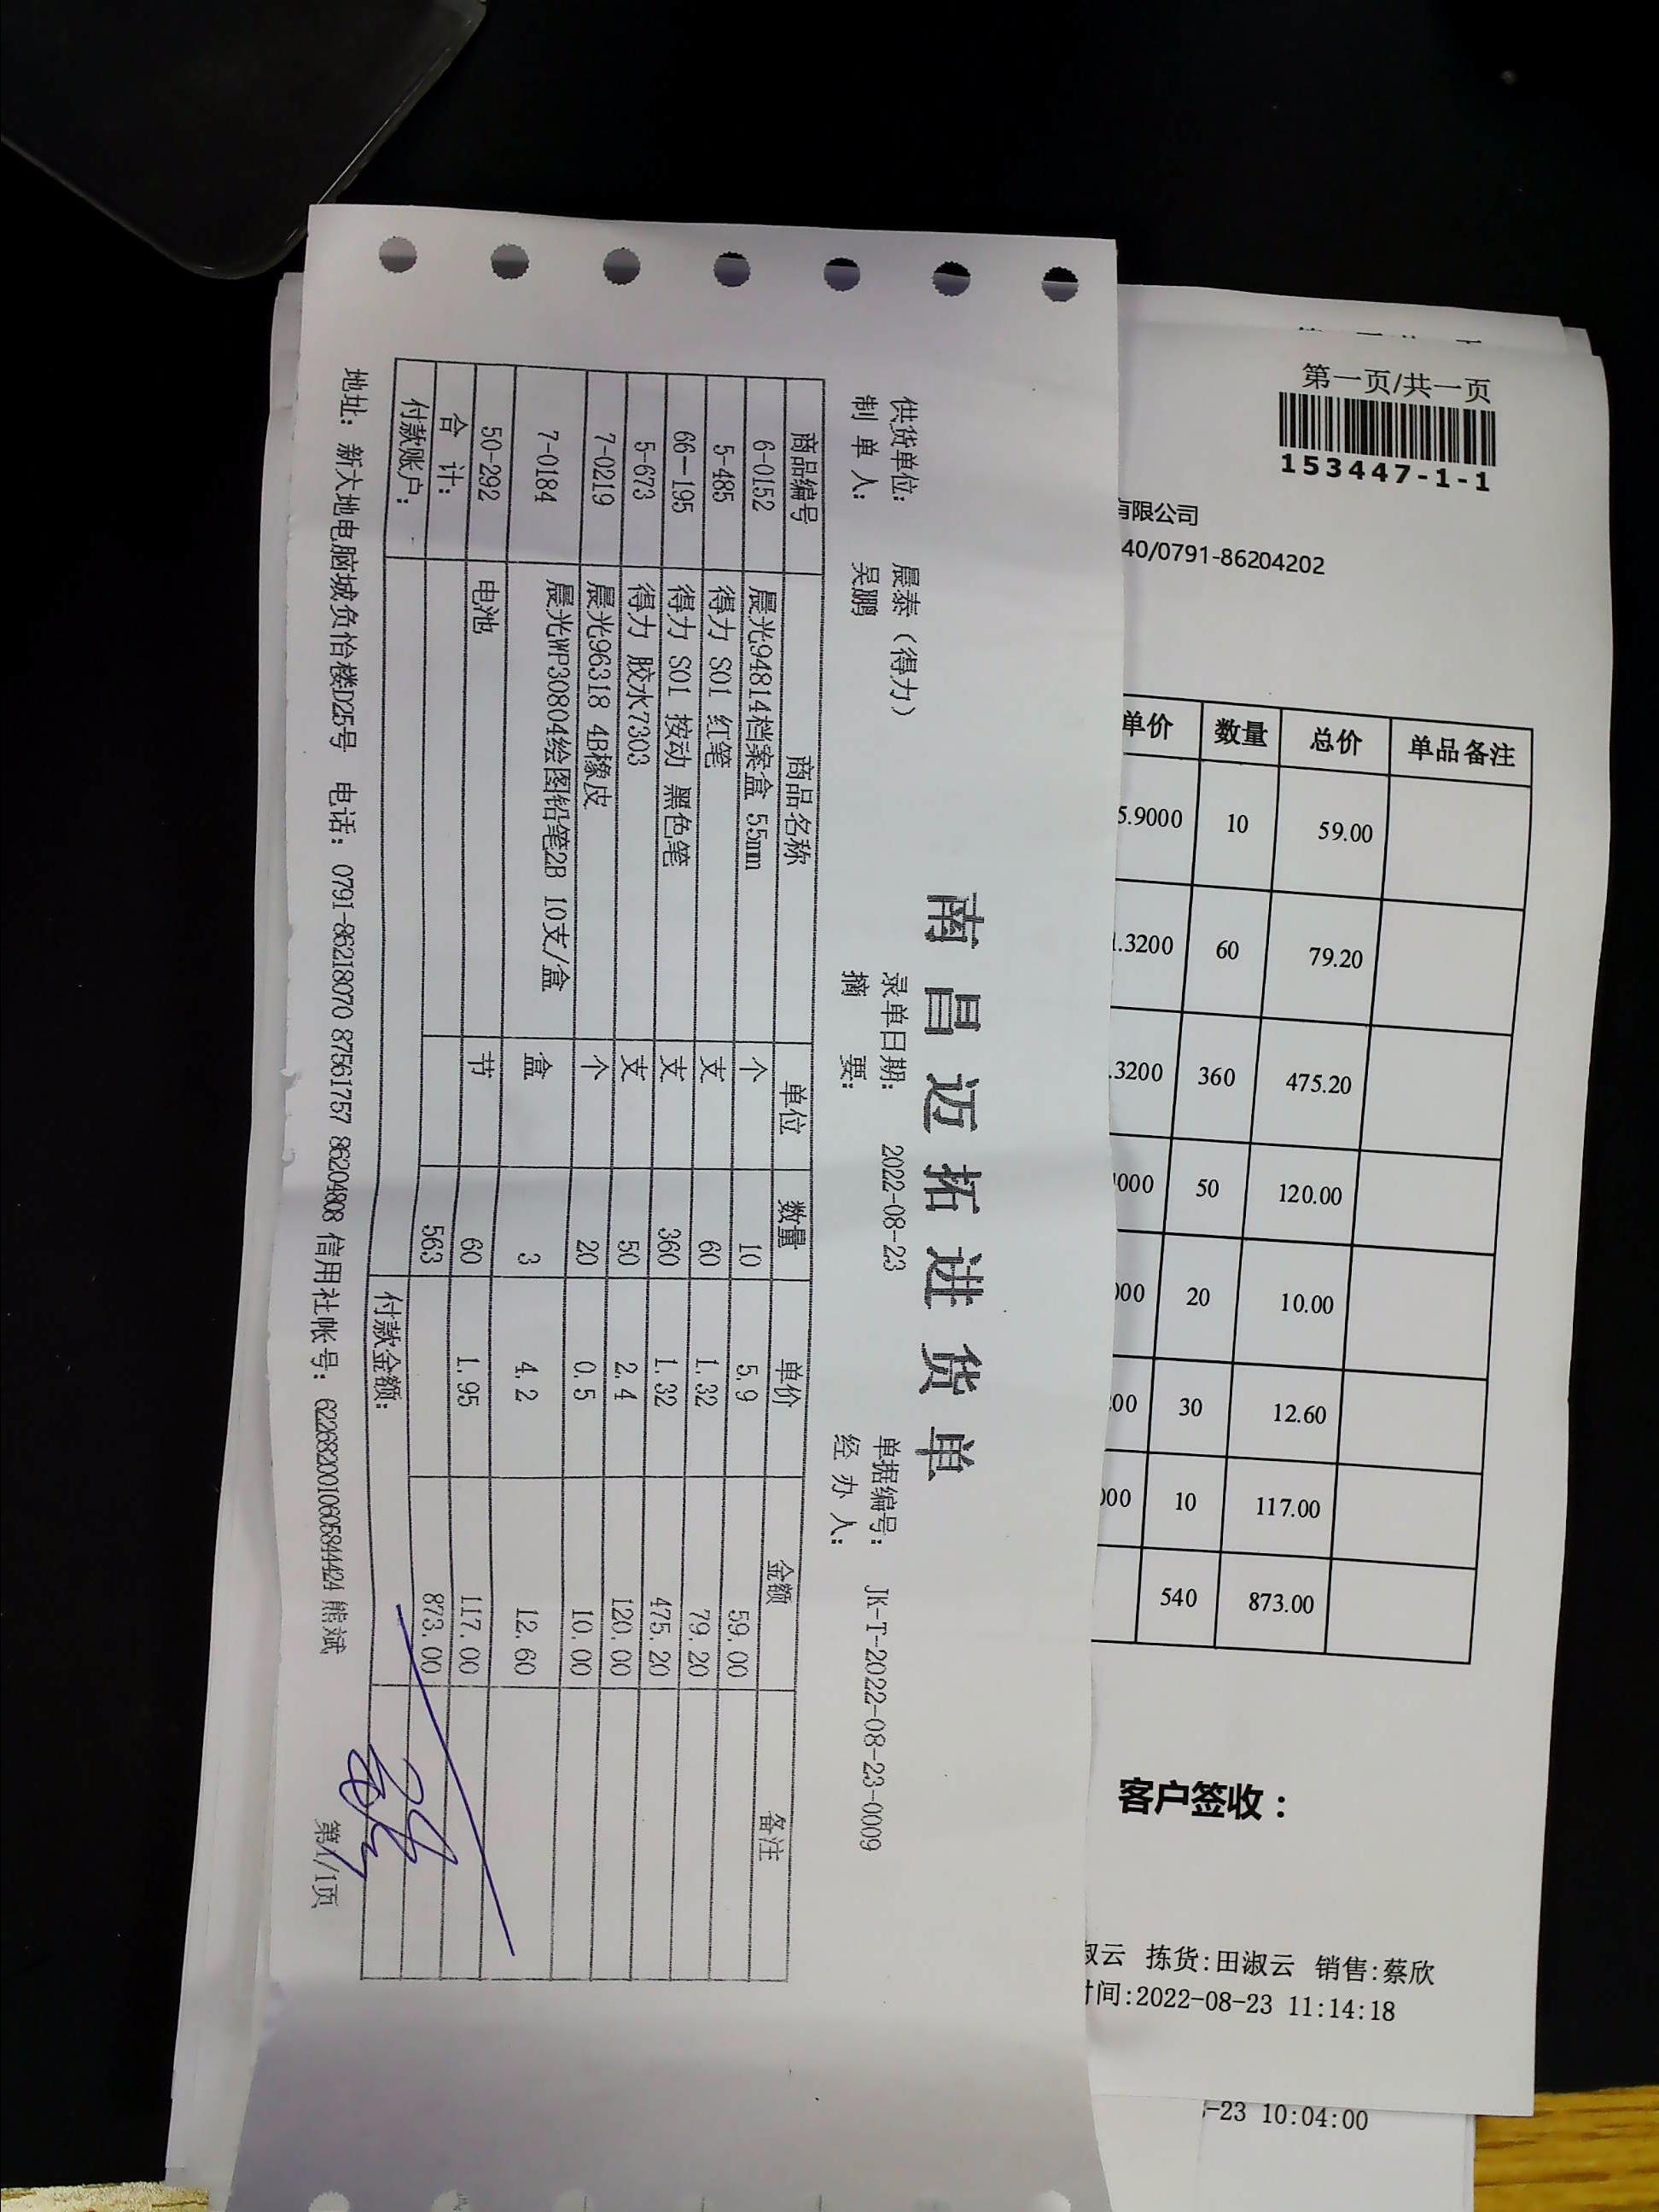 南昌迈拓进货单
供货单位: 晨泰（得力） 录单日期: 2022-08-23 单据编号: JK-T-2022-08-23-0009
制单人: 吴鹏 摘要: 经办人:
商品编号 商品名称 单位 数量 单价 金额 备注
6-0152 晨光94814档案盒 55mm 个 10 5.9 59.00
5-485 得力 S01 红笔 支 60 1.32 79.20
66-195 得力 S01 按动 黑色笔 支 360 1.32 475.20
5-673 得力 胶水7303 支 50 2.4 120.00
7-0219 晨光96318 4B橡皮 个 20 0.5 10.00
7-0184 晨光WP30804绘图铅笔2B 10支/盒 盒 3 4.2 12.60
50-292 电池 节 60 1.95 117.00
合计: 563 873.00
付款账户: 付款金额:
地址: 新大地电脑城负怡楼D25号 电话: 0791-86218070 87561757 86204808 信用社帐号: 6226820010605844424 熊斌 第1/1页
第一页/共一页
153447-1-1
有限公司
40/0791-86204202
单价 数量 总价 单品备注
5.9000 10 59.00
.3200 60 79.20
.3200 360 475.20
000 50 120.00
000 20 10.00
00 30 12.60
000 10 117.00
540 873.00
客户签收：
淑云 拣货:田淑云 销售:蔡欣
时间:2022-08-23 11:14:18
-23 10:04:00